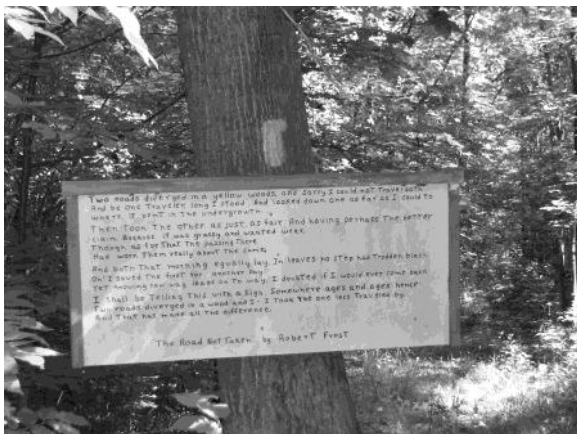 Two roads diverged in a yellow woods, and sorry I could not Travel both
And be one Traveler, long I stood. And looked down one as far as I could to
where it bent in the undergrowth.
Then Took The other as just as fair And having perhaps The better
claim Because it was grassy and wanted wear.
Though as for That The passing There
Had worn Them really about the same.
And both That morning equally lay. In leaves no step had Trodden black
Oh! I saved The first for another day.
Yet knowing how way leads on To way, I doubted if I would ever come back.
I shall be Telling This with a sigh. Somewhere ages and ages hence
Two roads diverged in a wood and I - I Took The one less Traveled by.
And That has made all The difference.
The Road Not Taken by Robert Frost